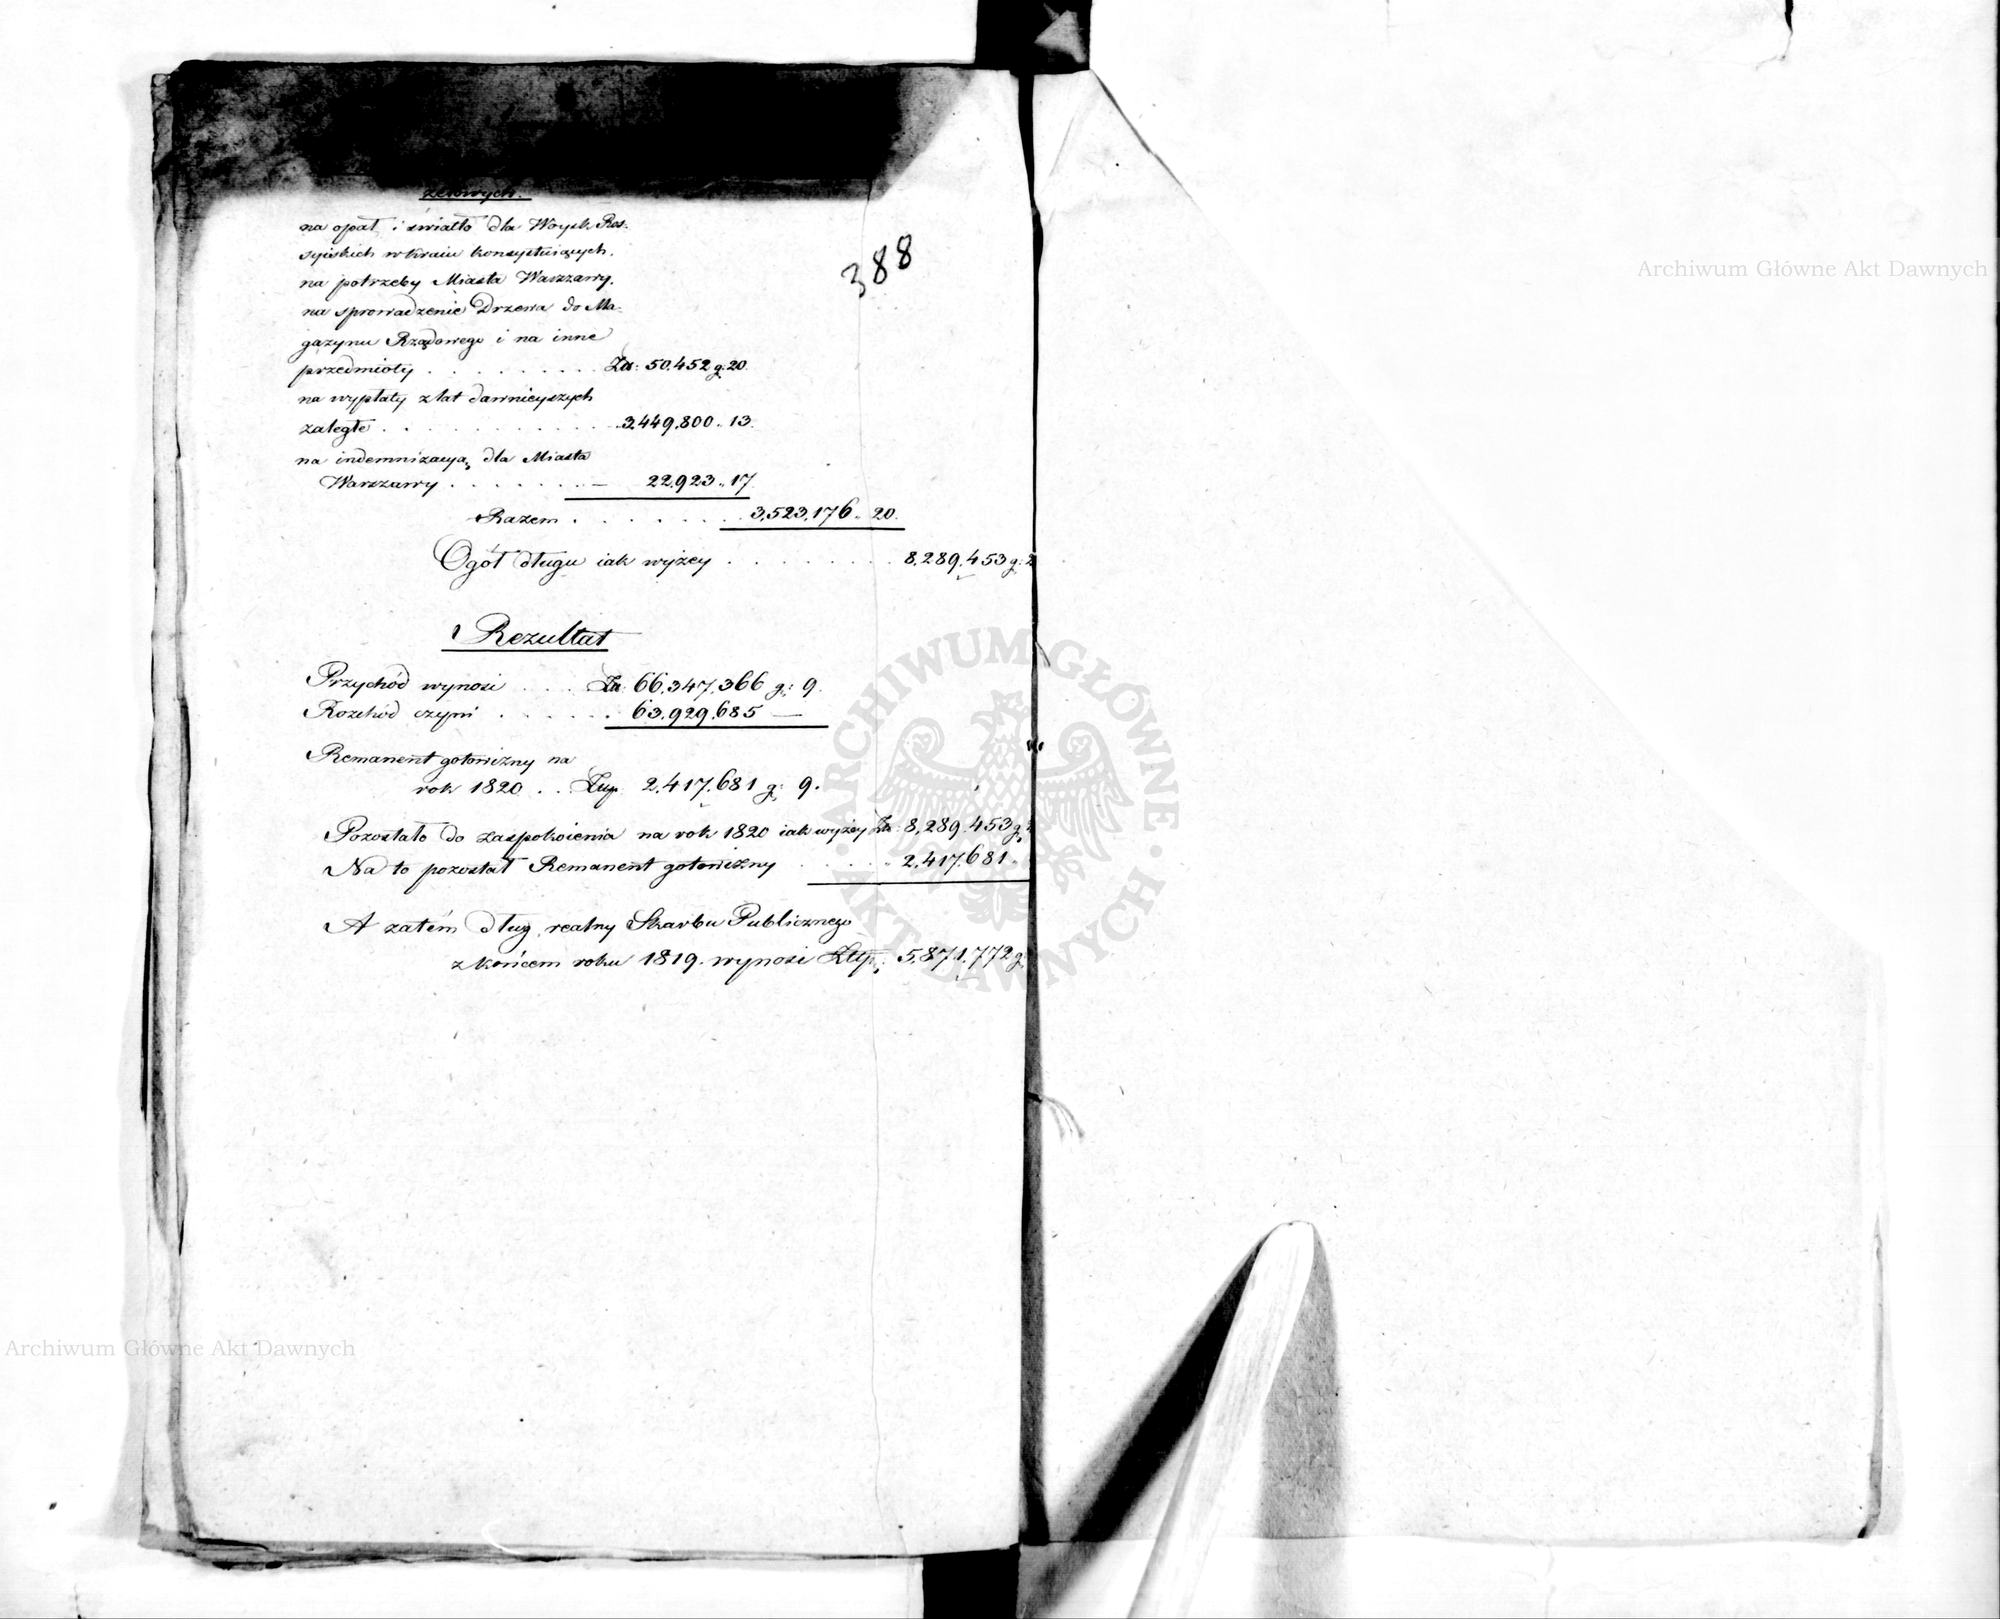 388
na opał i światło dla Woysk Ros:
syiskich w kraiu konsystuiących.
na potrzeby Miasta Warszawy.
na sprowadzenie Drzewa do Ma-
gazynu Rządowego i na inne
przedmioty . . . . . . . . . 50.452 g: 20.
na wypłaty z lat dawnieyszych
zaległe . . . . . . . . . . . 3.449.800 „ 13.
na indemnizacyą dla Miasta
Warszawy . . . . . . — 22.923 „ 17.
Razem . . . . . . . 3.523.176 „ 20.
Ogół długu iak wyżey . . . . . . . . . 8.289.453 g: 2
Rezultat
Przychód wynosi . . . . 66.347.366 g: 9.
Rozchód czyni . . . . . . 63.929.685 —
Remanent gotowizny na
rok 1820 . . . 2.417.681 g: 9.
Pozostało do zaspokoienia na rok 1820 iak wyżey 8.289.453 g:
Na to pozostał Remanent gotowizny . . . . . 2.417.681 „
A zatém dług realny Skarbu Publicznego
z końcem roku 1819. wynosi Złtp: 5.871.772 g:
Archiwum Główne Akt Dawnych
ARCHIWUM GŁÓWNE AKT DAWNYCH
Archiwum Główne Akt Dawnych